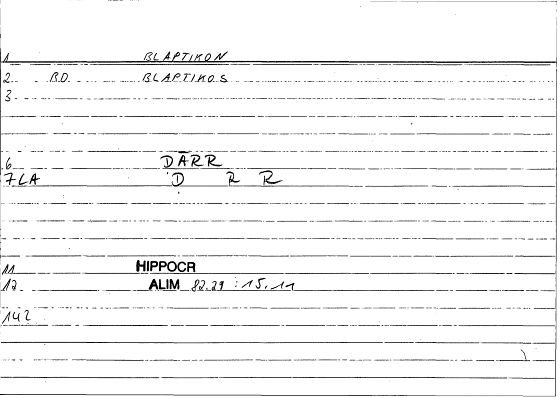 1 BLAPTIKON
2 BD BLAPTIKOS
3
6 DĀRR
7LA D R R
11 HIPPOCR
12 ALIM 82.29 : 15.11
142